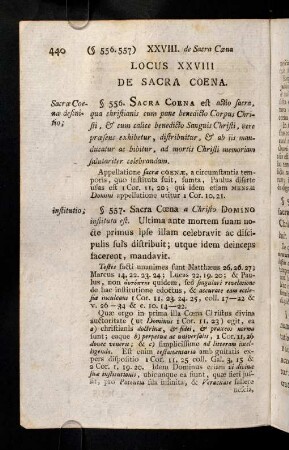 440 (§ 556. 557) XXVIII. de Sacra Cœna
LOCUS XXVIII
DE SACRA COENA.
Sacræ Coe-
næ definitio;
§ 556. SACRA COENA est actio sacra,
qua christianis cum pane benedicto Corpus Chri-
sti, & cum calice benedicto Sanguis Christi, vere
præsens exhibetur, distribuitur, & ab iis man-
ducatur ac bibitur, ad mortis Christi memoriam
salutariter celebrandam.
Appellatione sacræ COENÆ, a circumstantia tem-
poris, quo instituta fuit, sumta, Paulus diserte
usus est 1 Cor. 11, 20; qui idem etiam MENSÆ
Domini appellatione utitur 1 Cor. 10, 21.
institutio;
§ 557. Sacra Cœna a Christo DOMINO
instituta est. Ultima ante mortem suam no-
cte primus ipse illam celebravit ac disci-
pulis suis distribuit; utque idem deinceps
facerent, mandavit.
Testes facti unanimes sunt Matthæus 26, 26. 27;
Marcus 14, 22. 23. 24; Lucas 22, 19. 20; & Pau-
lus, non quidem, sed singulari revelatione
de hac institutione edoctus, &
1 Cor. 11, 23. 24. 25, coll. 17—22 &
v. 26—34 & c. 10, 14—22.
Quæ ergo in prima illa Cœna Christus divina
auctoritate (ut Dominus 1 Cor. 11, 23) egit, ea
a) christianis doctrinæ, & fidei, & praxeos norma
sunt; eaque b) perpetua ac universalis, 1 Cor. 11, 26
donec venerit; & c) simplicissimo ad litteram intel-
ligenda. Est enim testamentaria ambiguitatis ex-
pers dispositio 1 Cor. 11, 25. coll. Gal. 3, 15 &
2 Cor. 1, 19. 20. Idem Dominus etiam
suæ institutionis, ubicunque ea fiunt, quæ fieri jus-
sit, pro Potentia sua infinita, & Veracitate fallere
nescia,